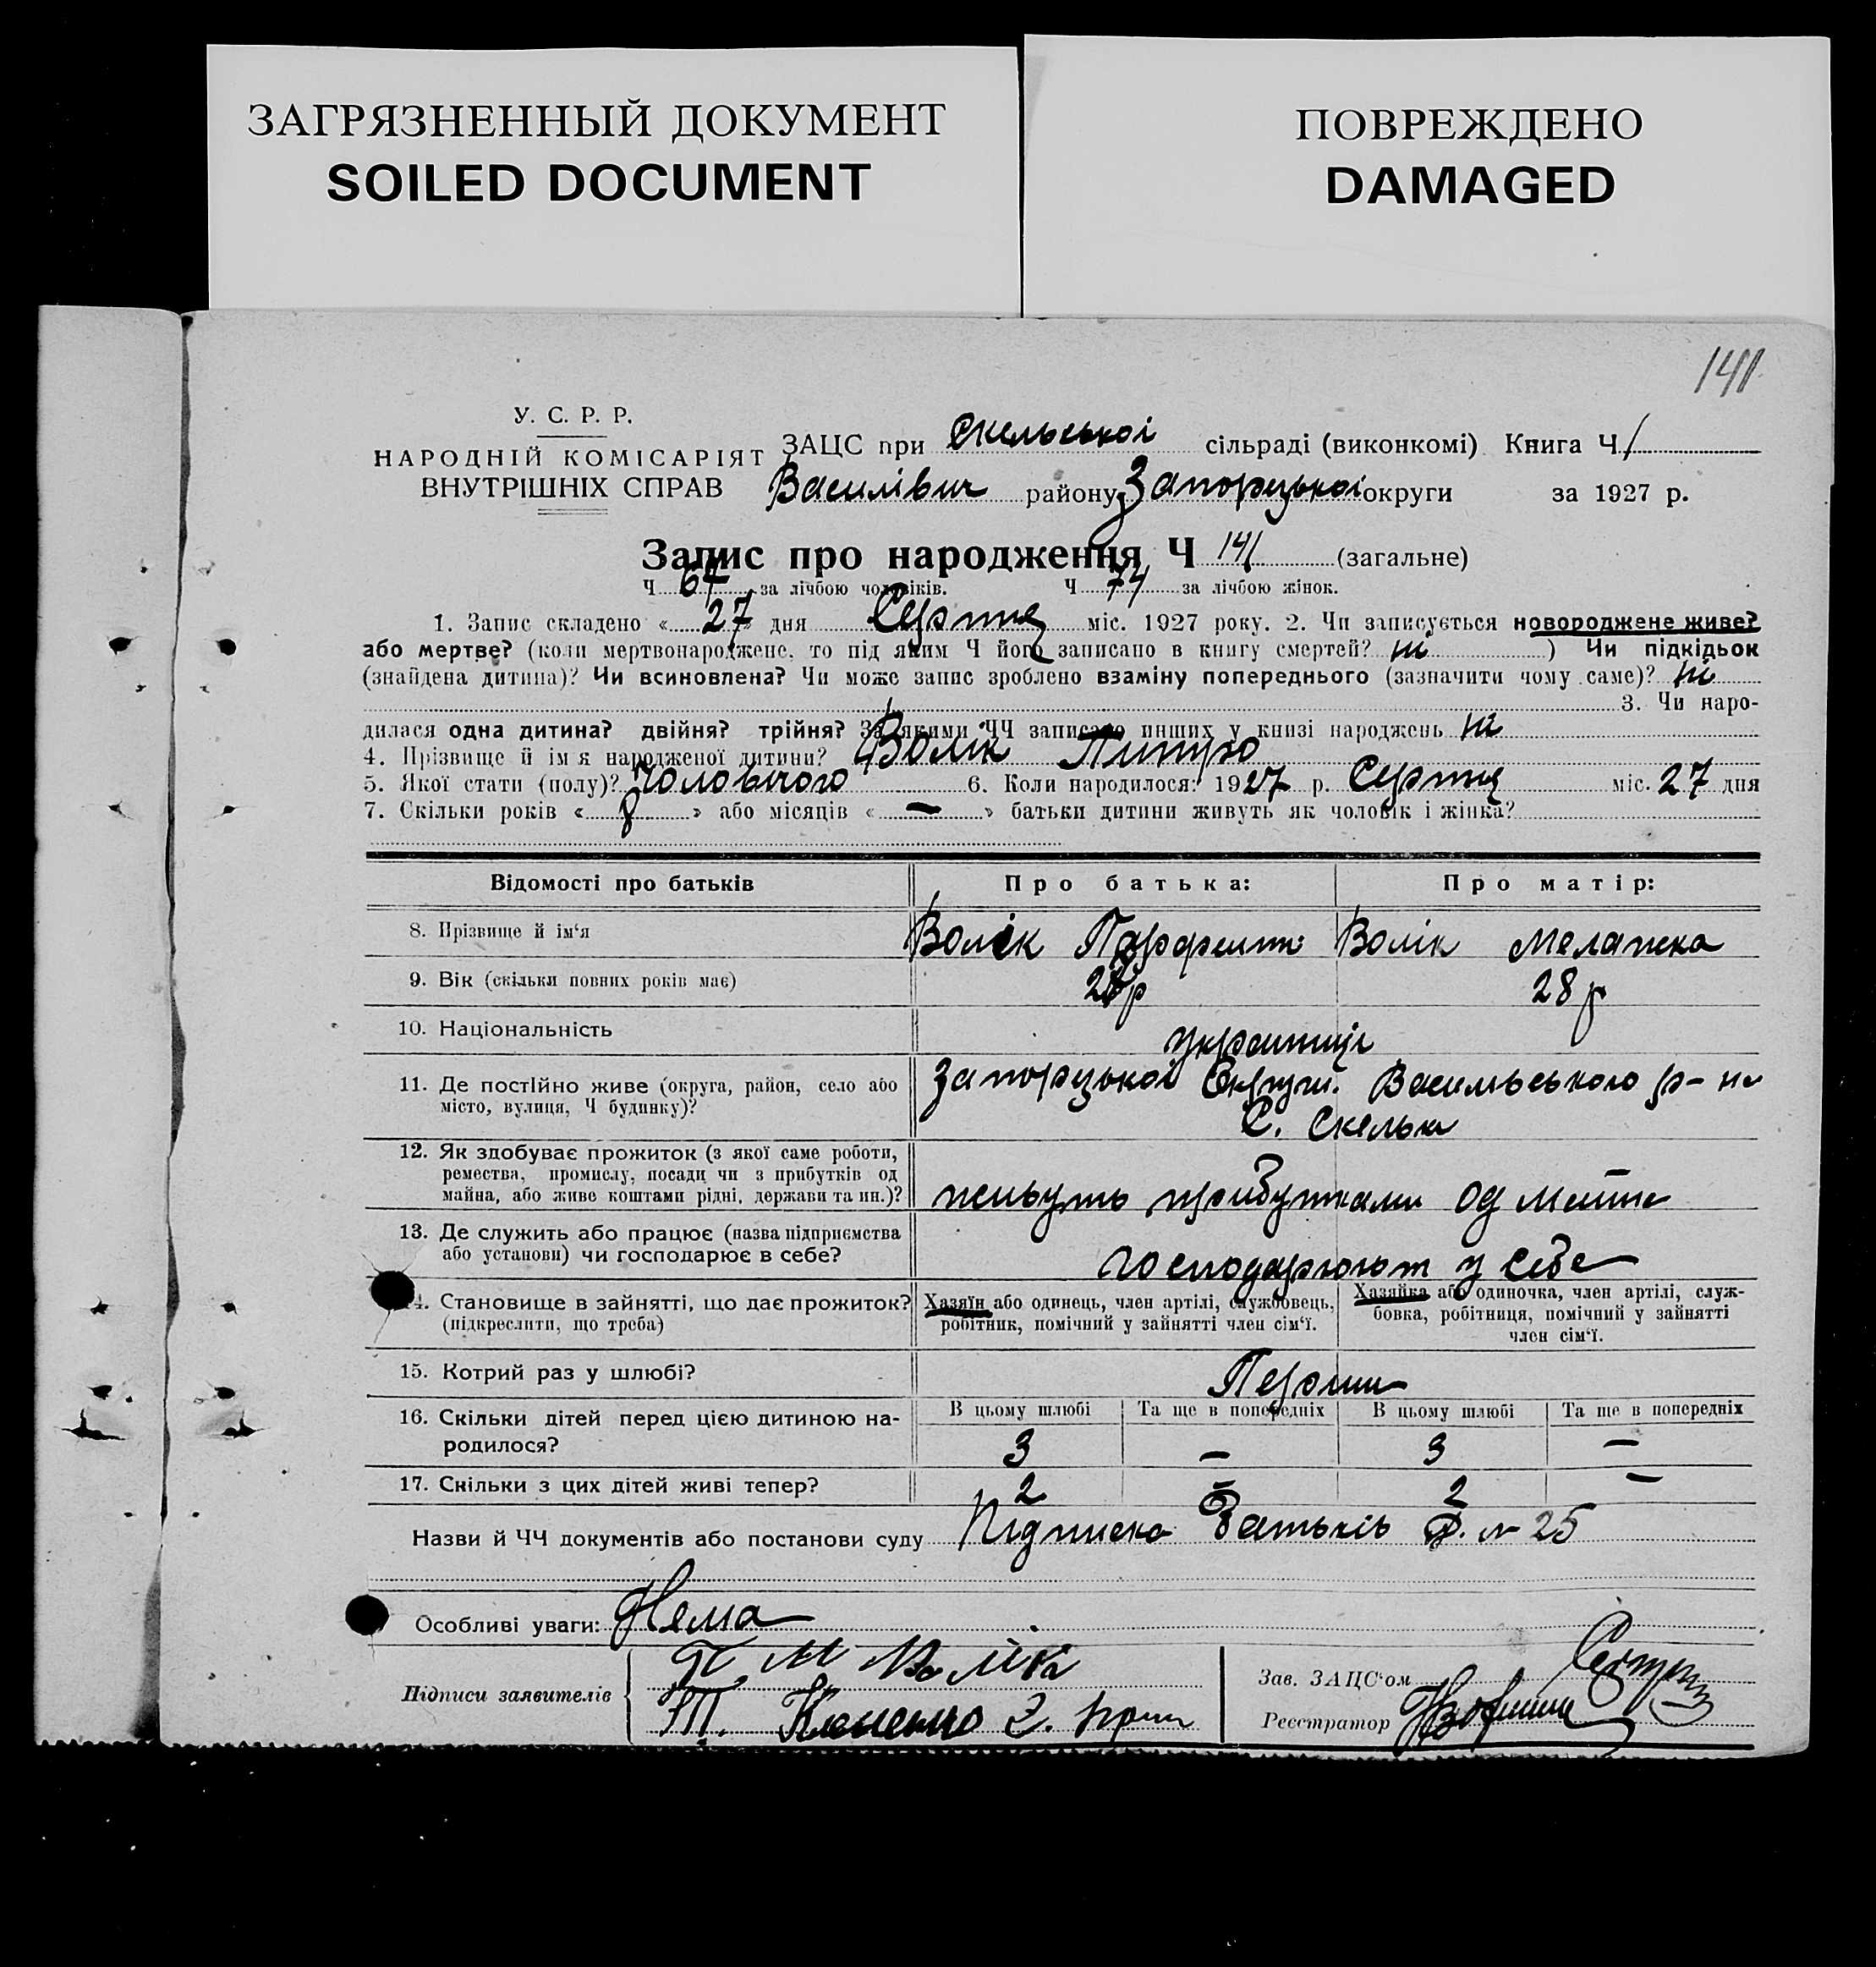 ЗАГРЯЗНЕННЫЙ ДОКУМЕНТ
SOILED DOCUMENT
ПОВРЕЖДЕНО
DAMAGED
141
У. С. Р. Р.
НАРОДНІЙ КОМІСАРІЯТ
ВНУТРІШНІХ СПРАВ
ЗАЦС при Скельської сільраді (виконкомі) Книга Ч 1
Василівич району Запорізької округи за 1927 р.
Запис про народження Ч 141 (загальне)
Ч 67 за лічбою чоловіків. Ч 74 за лічбою жінок.
1. Запис складено « 27 » дня Серпня міс. 1927 року. 2. Чи записується новороджене живе?
або мертве? (коли мертвонароджене, то під яким Ч його записано в книгу смертей? ні ) Чи підкідьок
(знайдена дитина)? Чи всиновлена? Чи може запис зроблено взаміну попереднього (зазначити чому саме)? ні
3. Чи наро-
дилася одна дитина? двійня? трійня? За якими ЧЧ записано инших у книзі народжень ні
4. Прізвище й ім'я народженої дитини? Волік
5. Якої стати (полу)? Чоловічого 6. Коли народилося: 1927 р. Серпня міс. 27 дня
7. Скільки років « 8 » або місяців « — » батьки дитини живуть як чоловік і жінка?
Відомості про батьків Про батька: Про матір:
8. Прізвище й ім'я Волік Волік Меланка
9. Вік (скільки повних років має) 28 р
10. Національність українці
11. Де постійно живе (округа, район, село або Запорізької Округи. Васильського р-ну
місто, вулиця, Ч будинку)? С. Скелька
12. Як здобуває прожиток (з якої саме роботи,
ремества, промислу, посади чи з прибутків од
майна, або живе коштами рідні, держави та ин.)? живуть прибутками од майна
13. Де служить або працює (назва підприємства
або установи) чи господарює в себе? господарюют у себе
14. Становище в зайнятті, що дає прожиток? Хазяїн або одинець, член артілі, службовець, Хазяйка або одиночка, член артілі, служ-
(підкреслити, що треба) робітник, помічний у зайнятті член сім'ї. бовка, робітниця, помічний у зайнятті
член сім'ї.
15. Котрий раз у шлюбі? Перший
16. Скільки дітей перед цією дитиною на- В цьому шлюбі Та ще в попередніх В цьому шлюбі Та ще в попередніх
родилося? 3 — 3 —
17. Скільки з цих дітей живі тепер? 2 — 2 —
Назви й ЧЧ документів або постанови суду Підписка Батьків № 25
Особливі уваги: Нема
Підписи заявителів П М Волік
Зав. ЗАЦС'ом
Реєстратор